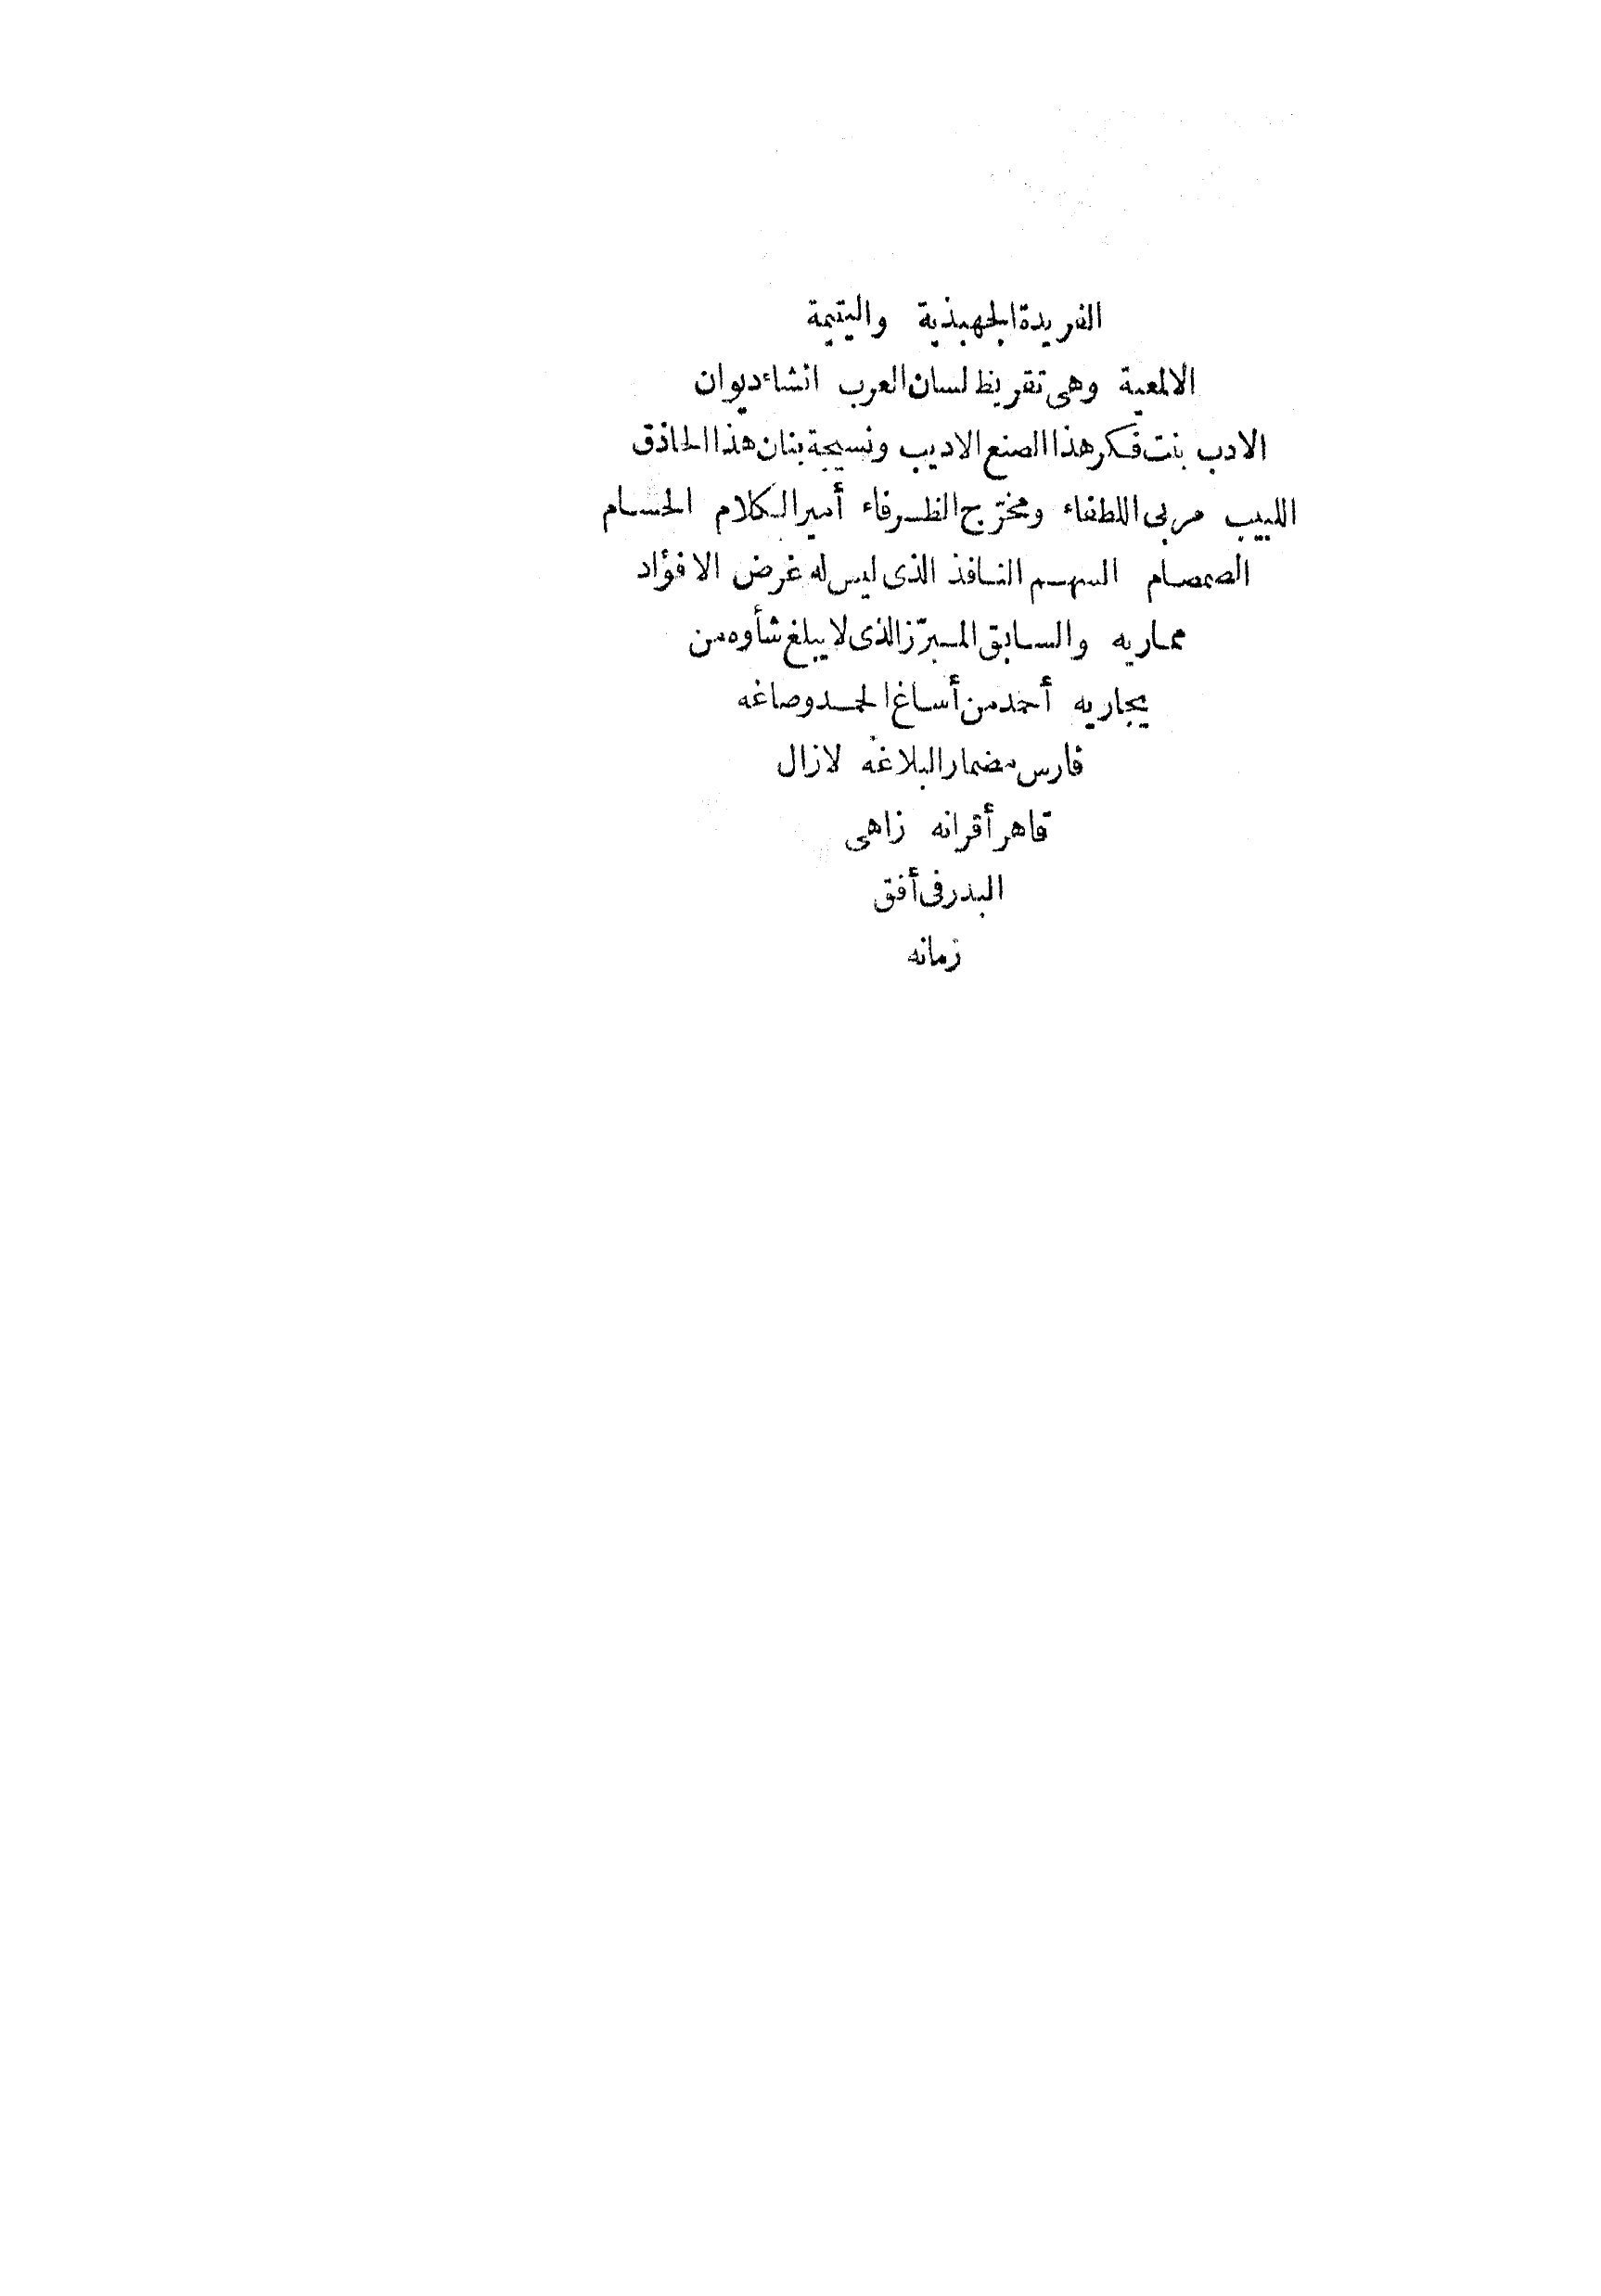 الفريدة الجهبذية واليتيمة
الالمعية وهى تقريظ لسان العرب انشاء ديوان
الادب بنت فكر هذا الصنع الاديب ونسيجة بنان هذا الحاذق
اللبيب مربى اللطفاء ومخرّج الظرفاء أمير الكلام الحسام
الصمصام السهم النافذ الذى ليس له غرض الا فؤاد
مماريه والسابق المبرّز الذى لا يبلغ شأوه من
يجاريه أحمد من أساغ الحمد وصاغه
فارس مضمار البلاغه لازال
قاهر أقرانه زاهى
البدر فى أفق
زمانه